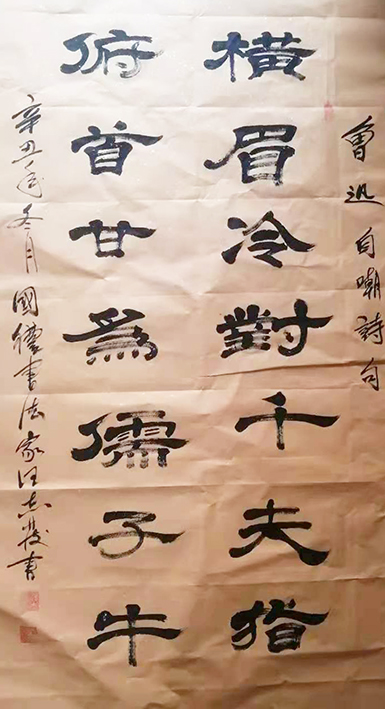 魯迅自嘲詩句
横眉冷對千夫指
俯首甘為儒子牛
辛丑年冬月國禮書法家汪志書